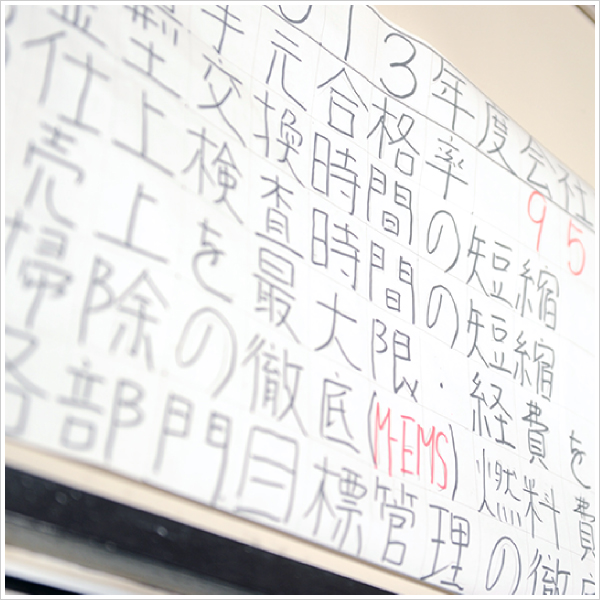 13年度会社
手元合格率 95
金型交換時間の短縮
仕上検査時間の短縮
売上を最大限・経費を
掃除の徹底(M-EMS)燃料費
各部門目標管理の徹底